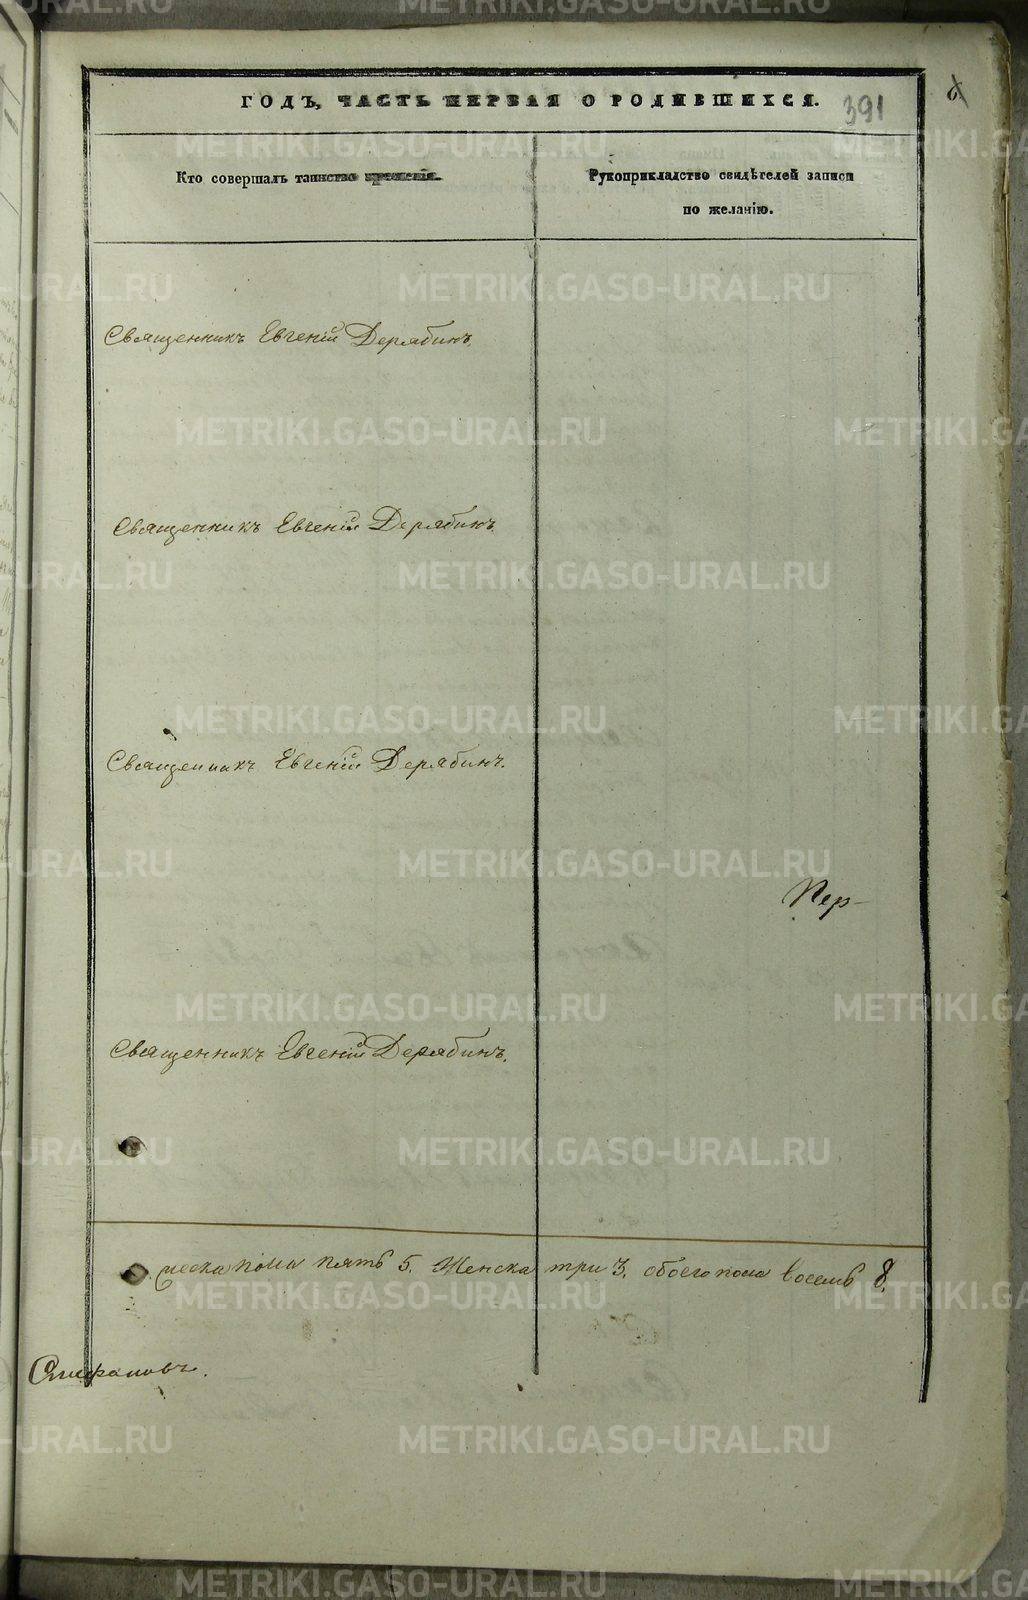 ГОДЪ, ЧАСТЬ ПЕРВАЯ О РОДИВШИХСЯ.
391
Кто совершалъ таинство крещенія.
Рукоприкладство свидѣтелей записи
по желанію.
Священникъ Евгеній Дерябинъ.
Священникъ Евгеній Дерябинъ.
Священникъ Евгеній Дерябинъ.
Пер-
Священникъ Евгеній Дерябинъ.
ческа пола пять 5. Женска три 3. обоего пола восемь 8.
METRIKI.GASO-URAL.RU